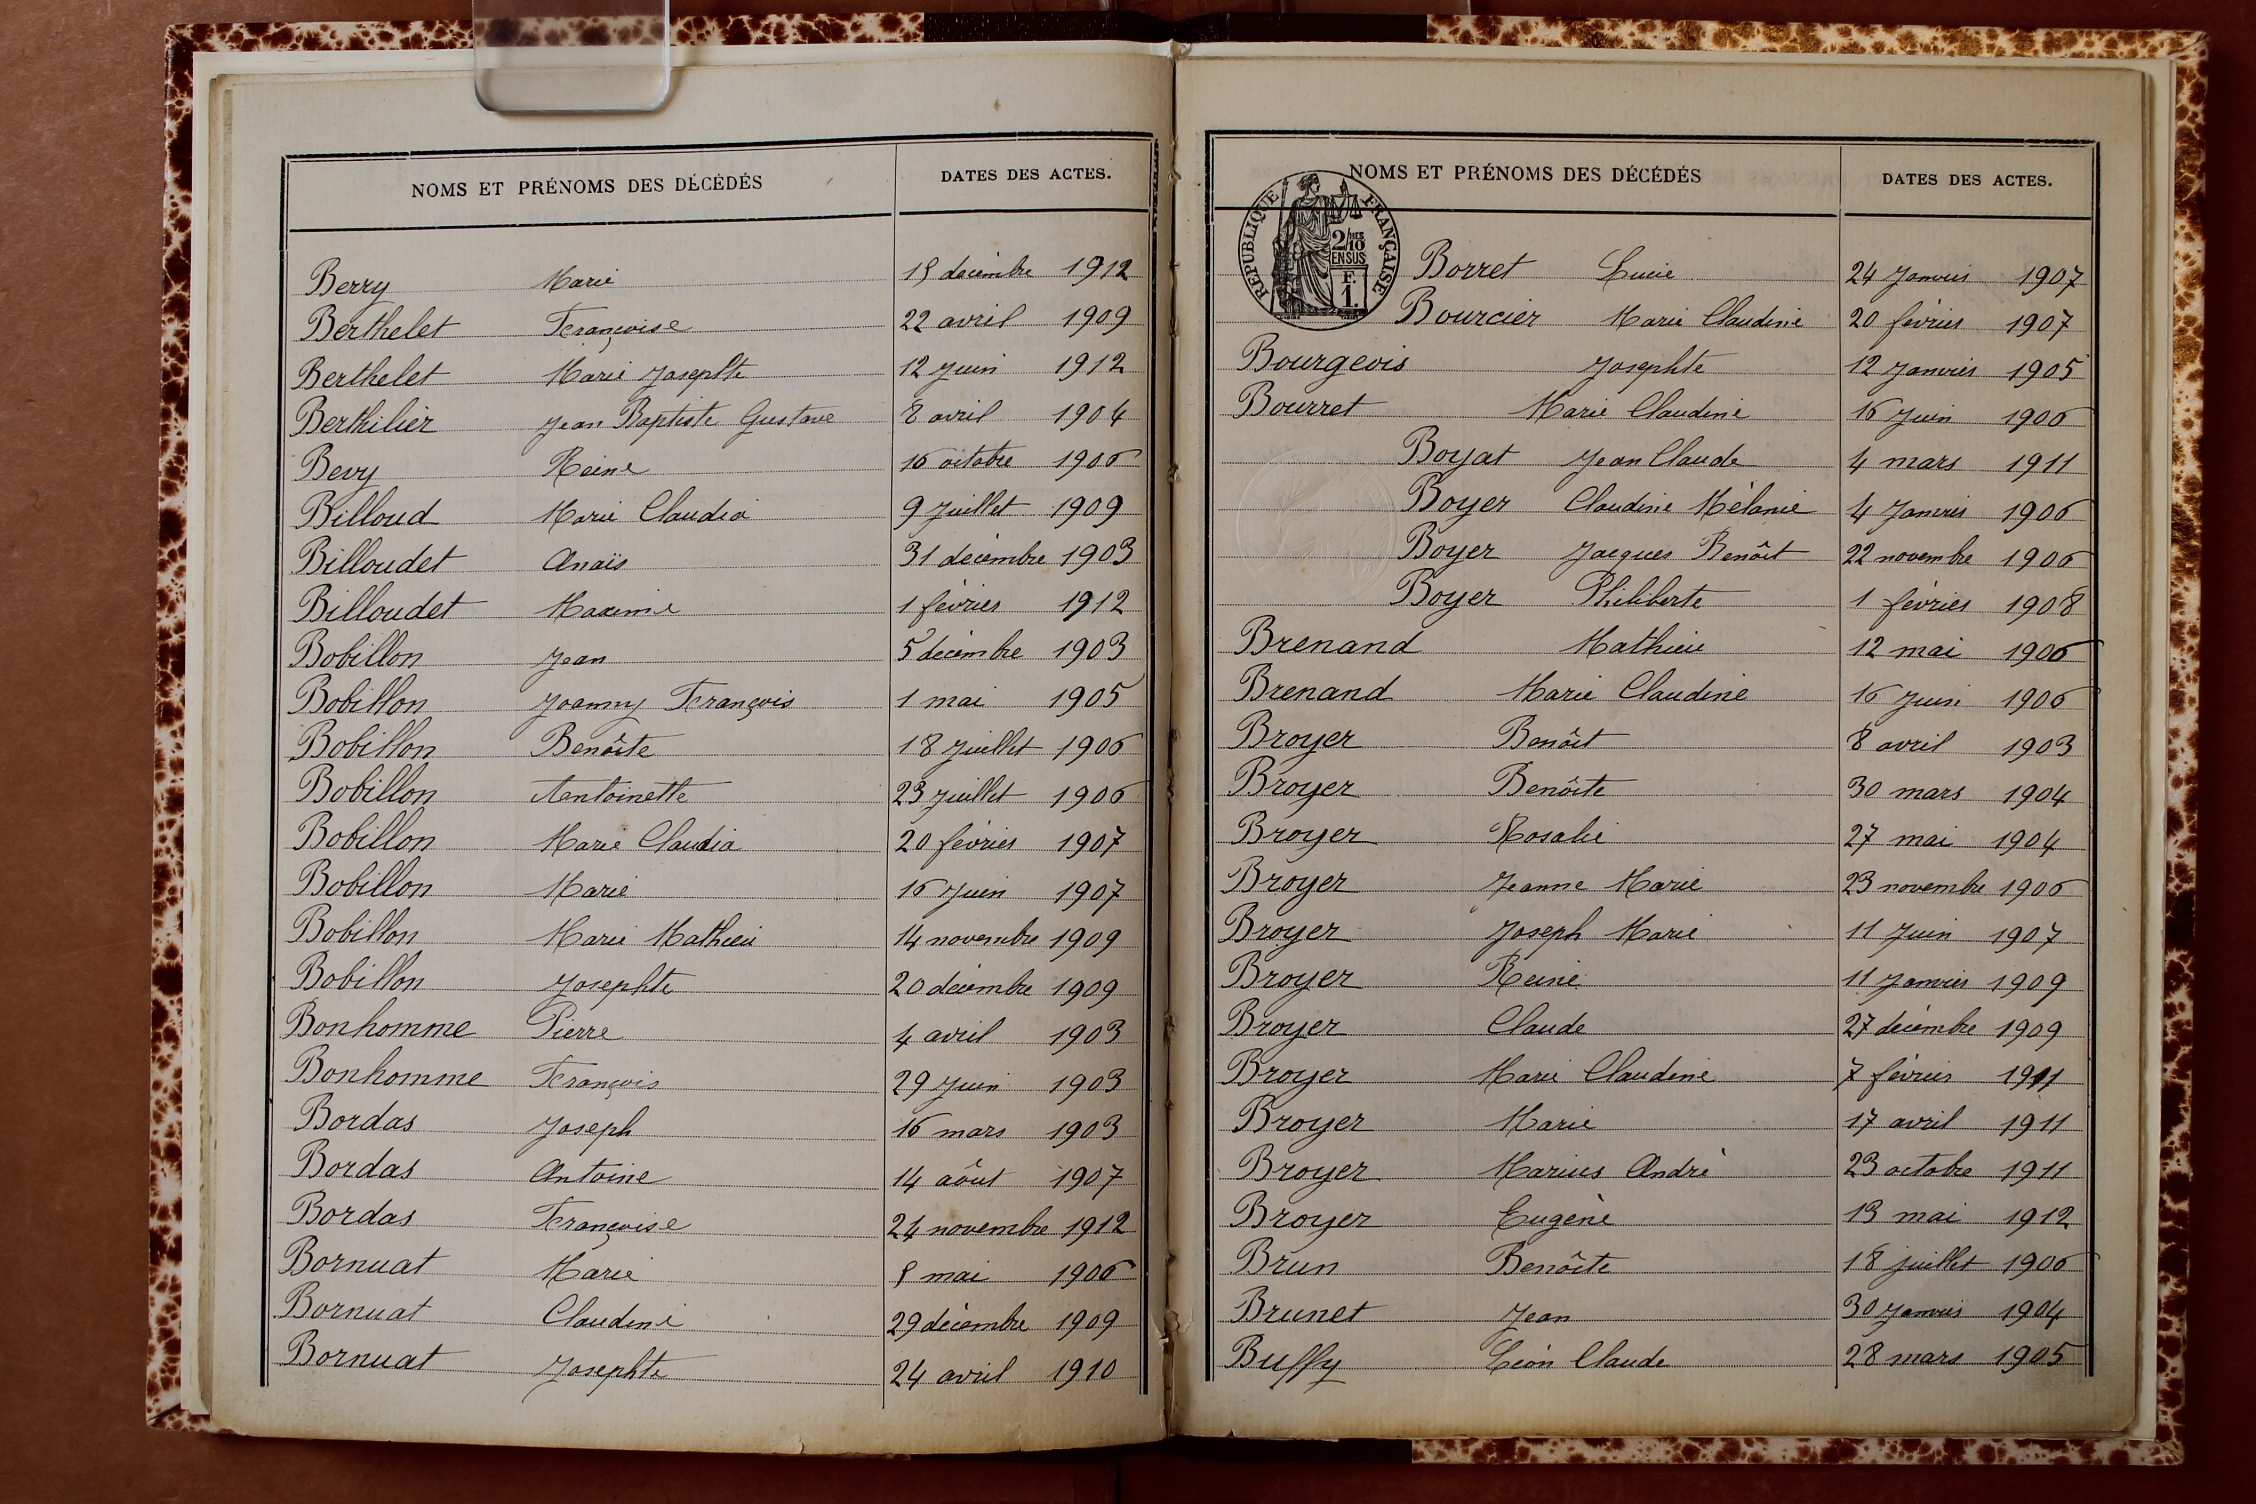 NOMS ET PRÉNOMS DES DÉCÉDÉS DATES DES ACTES.
Berry Marie 15 décembre 1912
Berthelet Françoise 22 avril 1909
Berthelet Marie Josephte 12 Juin 1912
Berthilier Jean Baptiste Gustave 8 avril 1904
Bevy Reine 16 octobre 1906
Billoud Marie Claudia 9 Juillet 1909
Billoudet Anaïs 31 décembre 1903
Billoudet Maxime 1 février 1912
Bobillon Jean 5 décembre 1903
Bobillon Joanny François 1 mai 1905
Bobillon Benôite 18 Juillet 1906
Bobillon Antoinette 23 Juillet 1906
Bobillon Marie Claudia 20 février 1907
Bobillon Marie 16 Juin 1907
Bobillon Marie Mathieu 14 novembre 1909
Bobillon Josephte 20 décembre 1909
Bonhomme Pierre 4 avril 1903
Bonhomme François 29 Juin 1903
Bordas Joseph 16 mars 1903
Bordas Antoine 14 aôut 1907
Bordas Françoise 24 novembre 1912
Bornuat Marie mai 1906
Bornuat Claudine 29 décembre 1909
Bornuat Josephte 24 avril 1910
NOMS ET PRÉNOMS DES DÉCÉDÉS DATES DES ACTES.
RÉPUBLIQUE FRANÇAISE
2/10 MES
EN SUS
F.
1.
Borret Lucie 24 Janvier 1907
Bourcier Marie Claudine 20 février 1907
Bourgeois Josephte 12 Janvier 1905
Bourret Marie Claudine 16 Juin 1906
Boyat Jean Claude 4 mars 1911
Boyer Claudine Mélanie 4 Janvier 1906
Boyer Jacques Benôit 22 novembre 1906
Boyer Philiberte 1 février 1908
Brenand Mathieu 12 mai 1906
Brenand Marie Claudine 16 Juin 1906
Broyer Benôit 8 avril 1903
Broyer Benôite 30 mars 1904
Broyer Rosalie 27 mai 1904
Broyer Jeanne Marie 23 novembre 1906
Broyer Joseph Marie 11 Juin 1907
Broyer Reine 11 Janvier 1909
Broyer Claude 27 décembre 1909
Broyer Marie Claudine 7 février 1911
Broyer Marie 17 avril 1911
Broyer Marius André 23 octobre 1911
Broyer Eugène 13 mai 1912
Brun Benôite 18 juillet 1906
Brunet Jean 30 Janvier 1904
Buffy Léon Claude 28 mars 1905